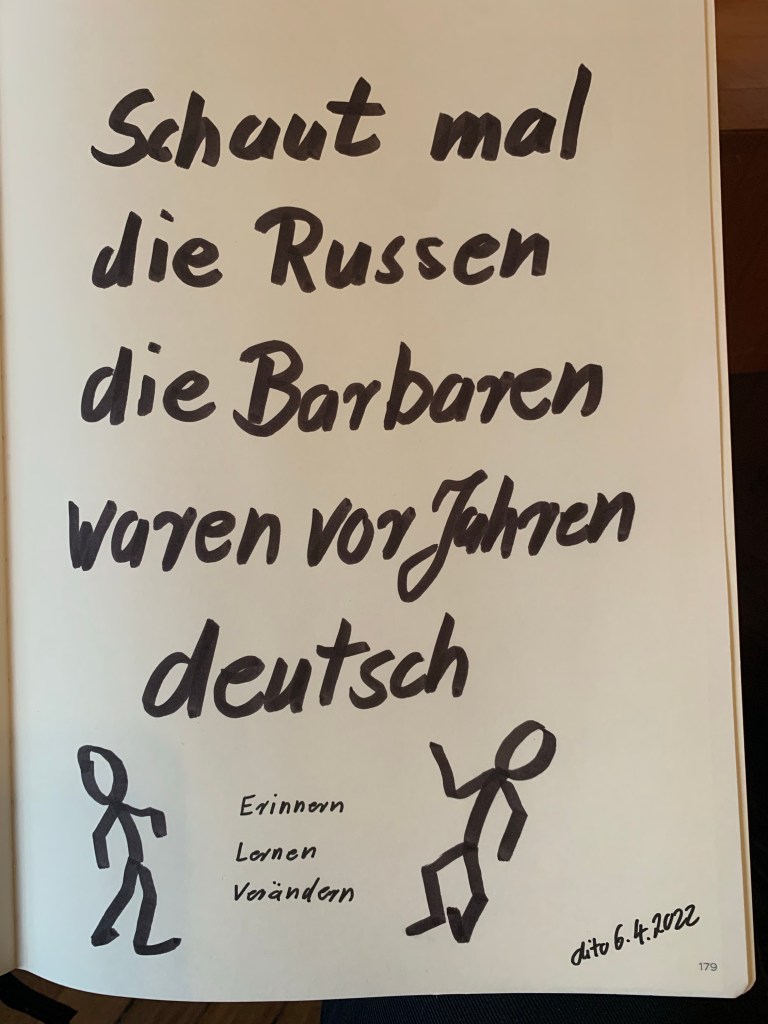 Schaut mal
die Russen
die Barbaren
waren vor Jahren
deutsch
Erinnern
Lernen
Verändern
dito 6.4.2022
179